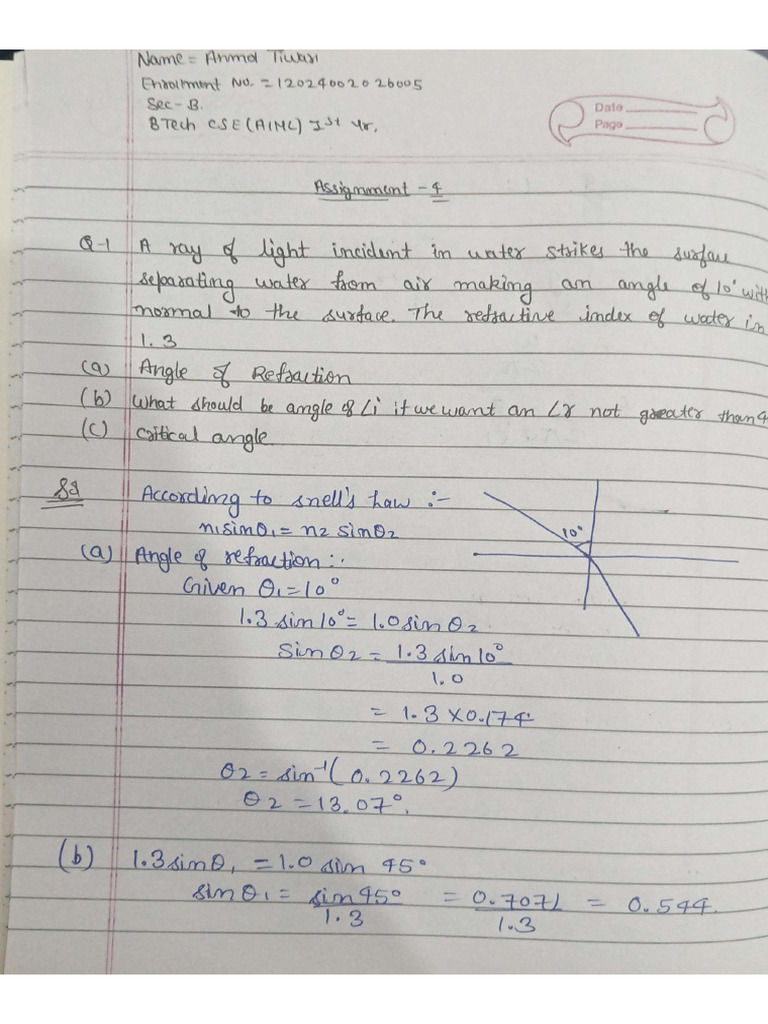 Name = Anmol Tiwari
Enrolment No. = 12024002026005
Sec - B.
BTech CSE(AIML) Ist Yr.
Date
Page
Assignment - 4
Q-1 A ray of light incident in water strikes the surface
separating water from air making an angle of 10° with
normal to the surface. The refractive index of water in
1.3
(a) Angle of Refraction
(b) What should be angle of ∠i if we want an ∠r not greater than 4
(c) critical angle
According to snell's Law :-
n1sinθ1 = n2 sinθ2
10°
(a) Angle of refraction :.
Given θ1 = 10°
1.3 sin10° = 1.0sin θ2
Sin θ2 = 1.3 sin10°
1.0
= 1.3 × 0.174
= 0.2262
θ2 = sin⁻¹(0.2262)
θ2 = 13.07°.
(b) 1.3sinθ1 = 1.0 sin 45°
sin θ1 = sin45° = 0.7071 = 0.544.
1.3 1.3